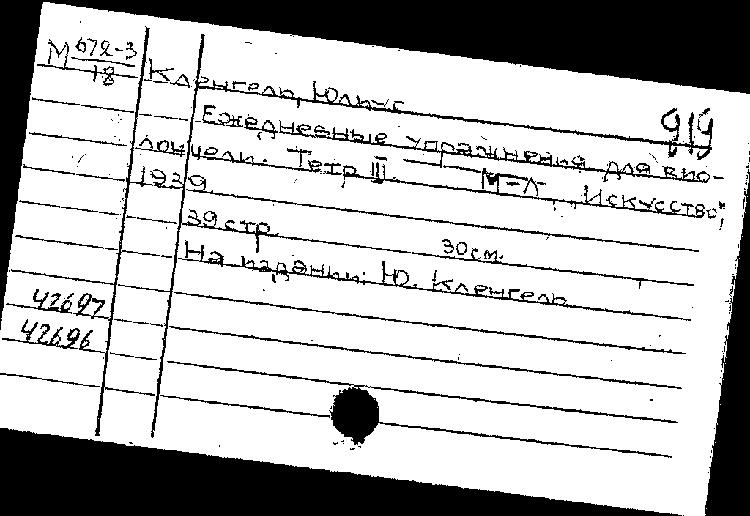 М 672-3
18
Кленгель, Юлиус
919
Ежедневные упражнения для вио-
лончели. Тетр III. М-Л, "Искусство",
1939.
39 стр. 30 см.
На издании: Ю. Кленгель
42697
42696